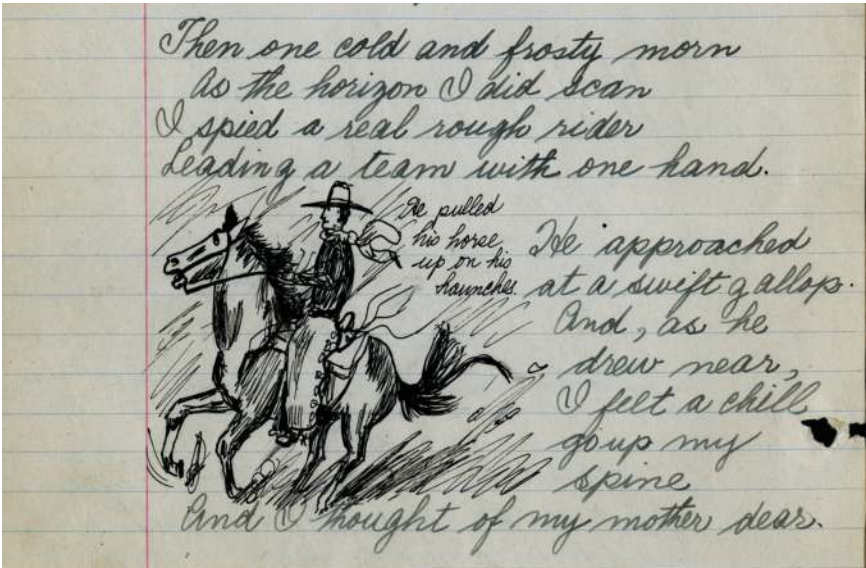 Then one cold and frosty morn
As the horizon I did scan
I spied a real rough rider
Leading a team with one hand.
He pulled
his horse
up on his
haunches.
He approached
at a swift gallop.
And, as he
drew near,
I felt a chill
go up my
spine
And I thought of my mother dear.